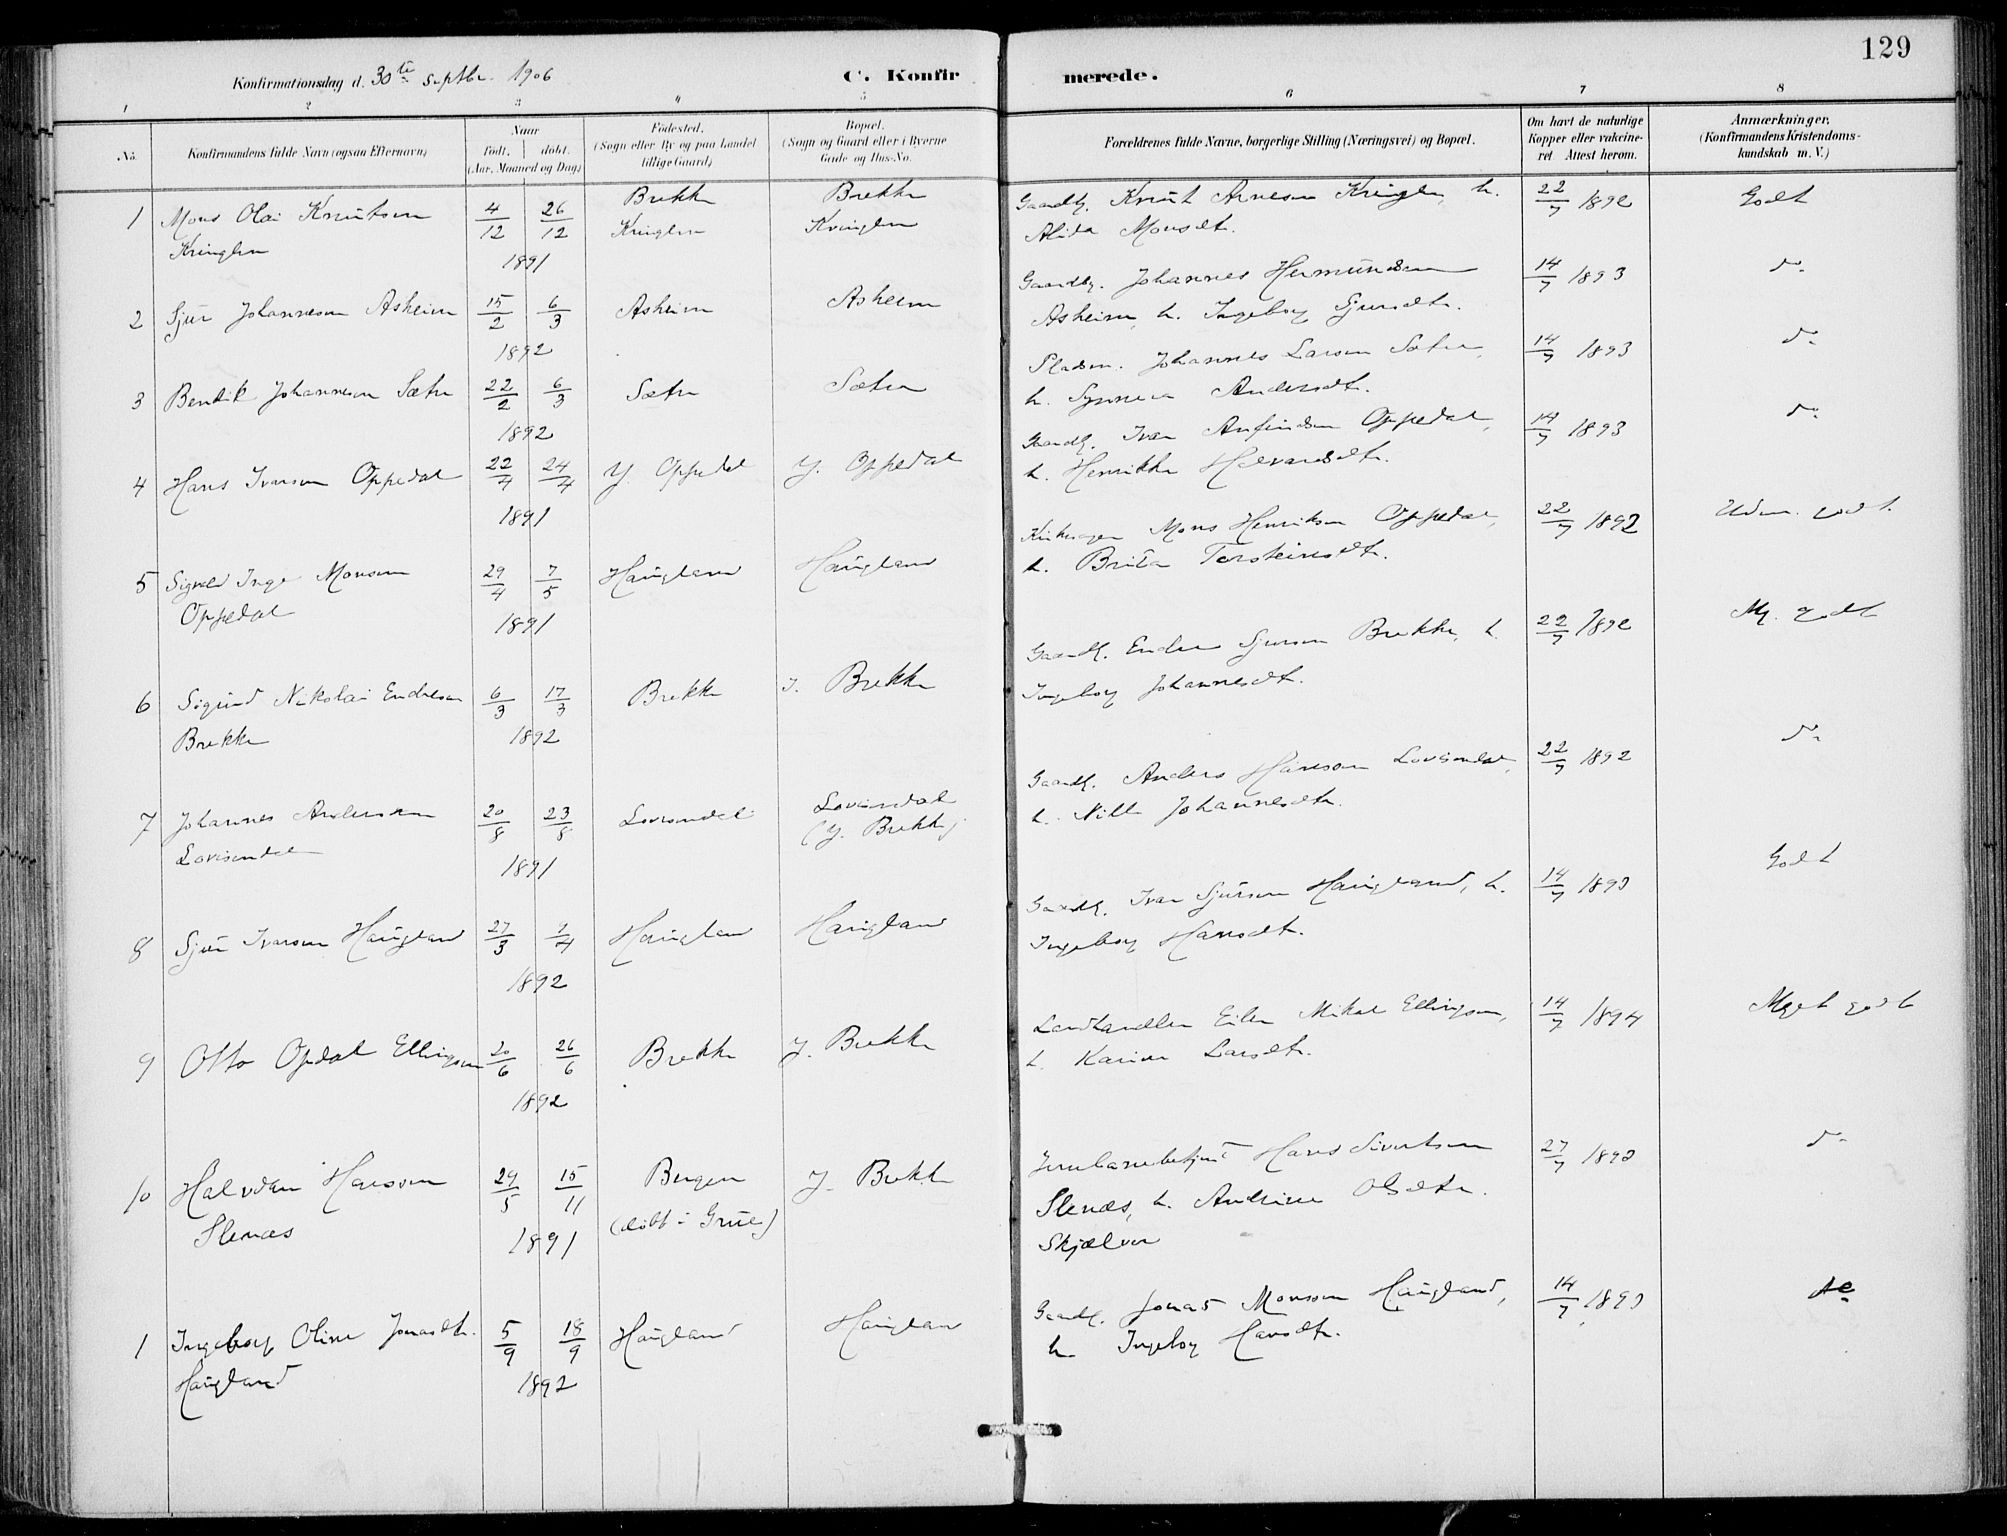 129
Konfirmationsdag d. 30te Septbr. 1906
C. Konfirmerede.
1 2 3 4 5 6 7 8
No.
Konfirmandens fulde Navn (ogsaa Efternavn)
Naar
født. døbt.
(Aar, Maaned og Dag)
Fødested.
(Sogn eller By og paa Landet
tillige Gaard)
Bopæl.
(Sogn og Gaard eller i Byerne
Gade og Hus-No.
Forældrenes fulde Navne, borgerlige Stilling (Næringsvei) og Bopæl.
Om havt de naturlige
Kopper eller vakcine-
ret Attest herom.
Anmærkninger.
(Konfirmandens Kristendoms-
kundskab m. V.)
1 Mons Olai Knutsen 4/12 26/12 Brekke Brekke Gaardb. Knut Arnesen Kringlen, h. 22/7 1892 Godt
Kringlen 1891 Kringlen Kringlen Alida Monsdtr.
2 Sjur Johannesen Asheim 15/2 6/3 Asheim Asheim Gaardbr. Johannes Hermundsen 14/7 1893 do
1892 Asheim, h. Ingeborg Sjursdtr.
3 Bendik Johannesen Sætre 22/2 6/3 Sætre Sætre Pladsm. Johannes Larsen Sætre, 14/7 1893 do
1892 h. Synneva Andersdtr.
4 Hans Iversen Oppedal 22/4 24/4 Y. Oppedal Y. Oppedal Gaardb. Ivar Anfindsen Oppedal, 14/7 1893 do
1891 h. Henrikke Halvardsdtr.
5 Sigvald Inge Monsen 29/4 7/5 Haugland Haugland Kirkesanger Mons Henriksen Oppedal, 22/7 1892 Udm. godt.
Oppedal 1891 h. Brita Torsteinsdtr.
6 Sigurd Nikolai Endresen 6/3 17/3 Brekke Y. Brekke Gaardb. Endre Sjursen Brekke, h. 22/7 1892 Mg. godt
Brekke 1892 Ingeborg Johannesdtr.
7 Johannes Andersen 20/8 23/8 Lovisendal Lovisendal Gaardb. Anders Hansen Lovisendal, 22/7 1892 do
Lovisendal 1891 (Y. Brekke) h. Nille Johannesdtr.
8 Sjur Iversen Haugland 27/3 7/4 Haugland Haugland Gaardb. Ivar Sjursen Haugland, h. 14/7 1893 Godt
1892 Ingeborg Hansdtr.
9 Otto Opdal Ellingsen 20/6 26/6 Brekke Y. Brekke Landhandler Eiler Mikal Ellingsen, 14/7 1894 Meget godt
1892 h. Karine Larsdtr.
10 Halvdan Hansen 29/5 15/11 Bergen Y. Brekke Jernbanebetjent Hans Sivertsen 27/7 1893 do
Stenæs 1891 (døbt i Grue) Stenæs, h. Andrine Olsdtr.
Skjælver
1 Ingeborg Oline Jonasdtr. 5/9 18/9 Haugland Haugland Gaardb. Jonas Monsen Haugland, 14/7 1893 do
Haugland 1892 h. Ingeborg Hansdtr.